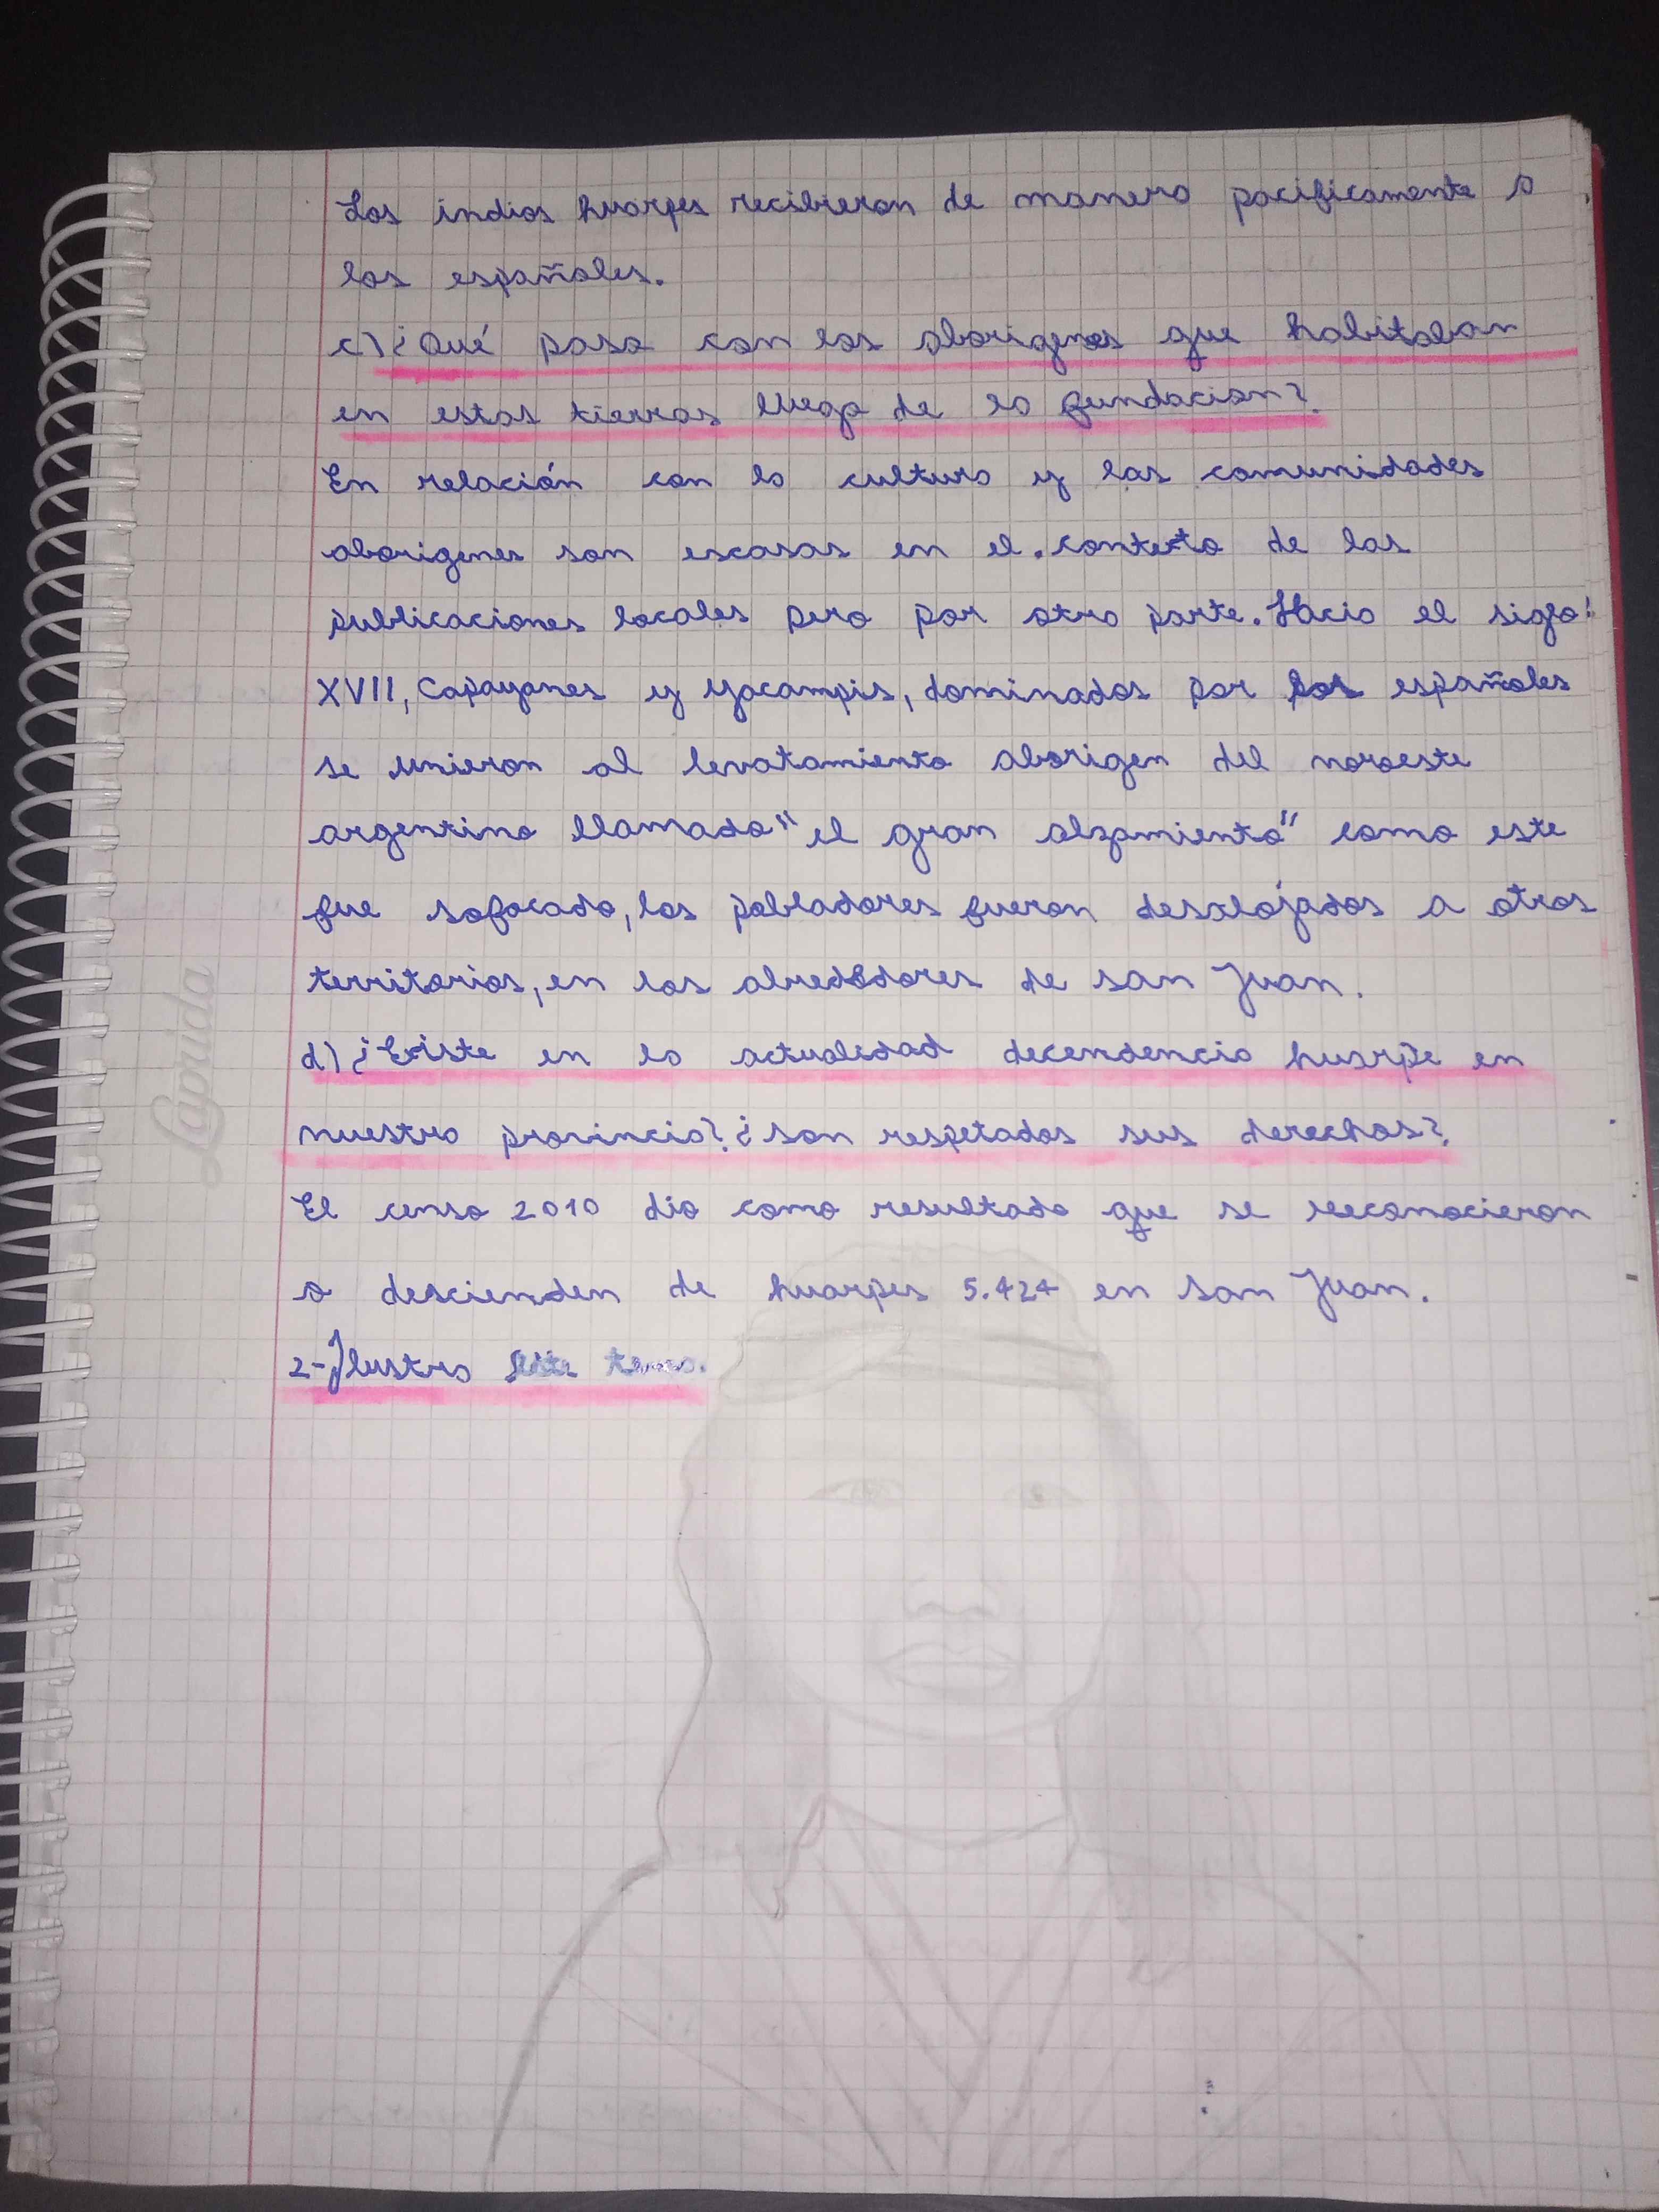 Los indios huarpes recibieron de manera pacificamente a
los españoles.
c) ¿Qué paso con los aborigenes que habitaban
en estas tierras luego de la fundacion?
En relación con la cultura y las comunidades
aborigenes son escasas en el contexto de las
publicaciones locales pero por otra parte. Hacia el siglo
XVII, Capayanes y Yacampis, dominados por los españoles
se unieron al levatamiento aborigen del noroeste
argentino llamado "el gran alzamiento" como este
fue sofocado, los pobladores fueron desalojados a otros
territorios, en los alrededores de san Juan.
d) ¿Existe en la actualidad decendencia huarpe en
nuestra provincia? ¿son respetados sus derechos?
El censo 2010 dio como resultado que se reconocieron
o descienden de huarpes 5.424 en san Juan.
2-Ilustra este tema.
Laprida